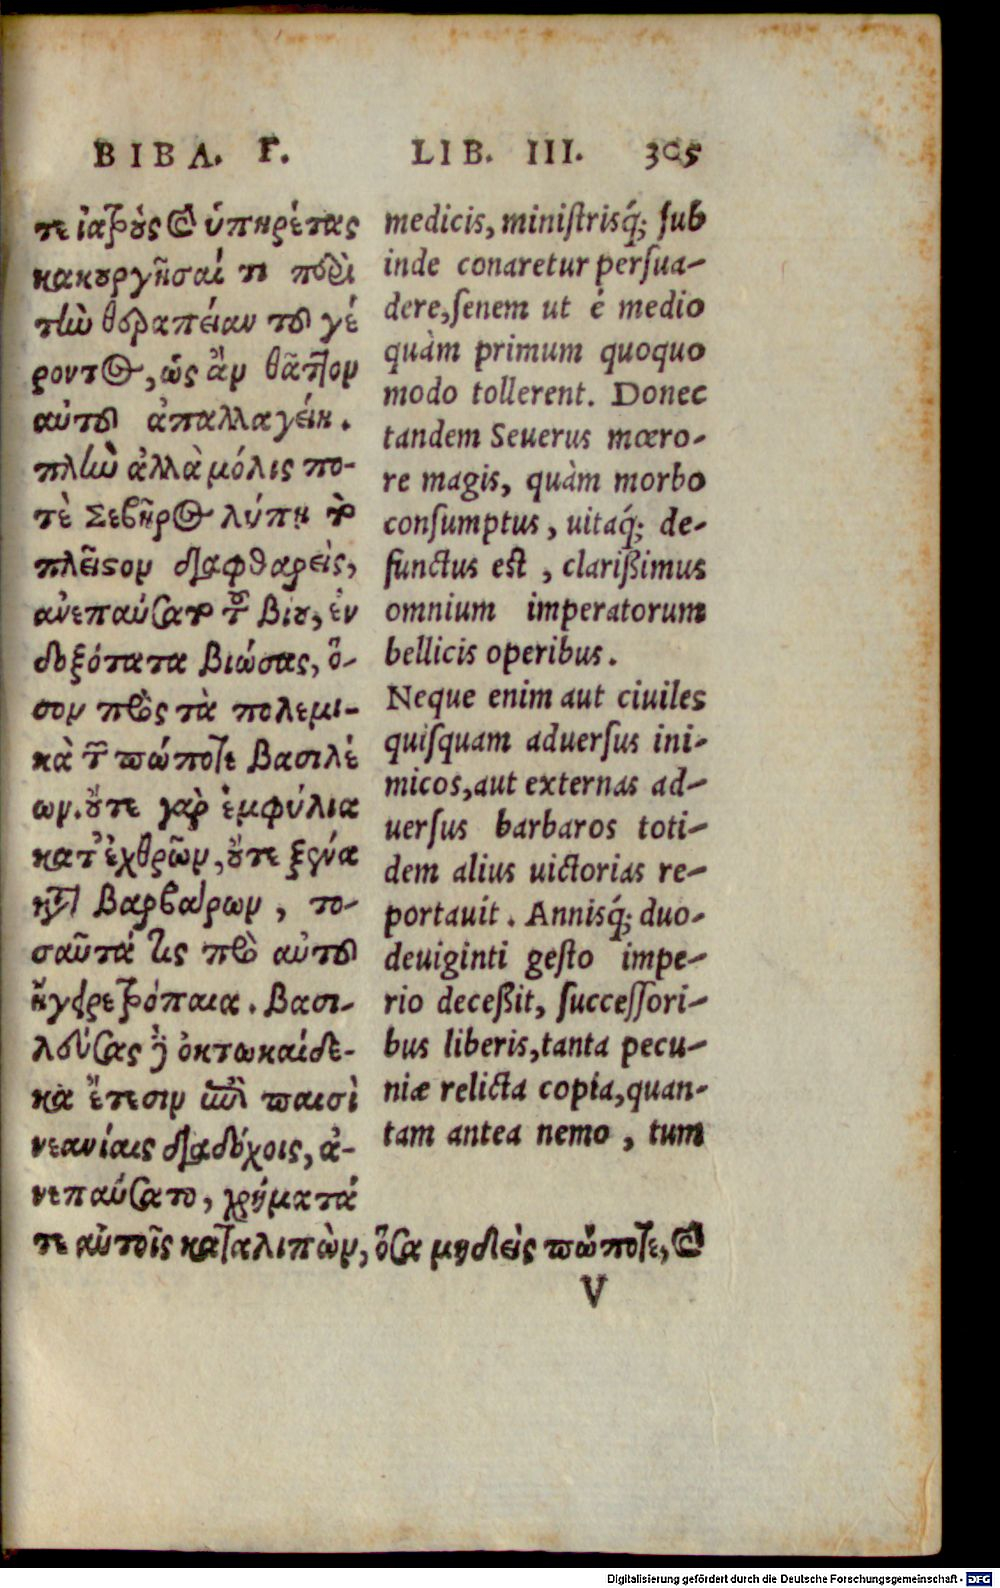 ΒΙΒΛ. Γ.
LIB. III. 305
τε ἰατροὺς καὶ ὑπηρέτας
κακουργῆσαί τι περὶ
τὴν θεραπείαν τοῦ γέ
ροντος, ὡς ἂν θᾶττον
αὐτοῦ ἀπαλλαγείη.
πλὴν ἀλλὰ μόλις πο-
τὲ Σεβῆρος λύπῃ τὸ
πλεῖστον διαφθαρεὶς,
ἀνεπαύσατο τοῦ βίου, ἐν
δοξότατα βιώσας, ὅ-
σον πρὸς τὰ πολεμι-
κὰ τῶν πώποτε βασιλέ
ων. οὔτε γὰρ ἐμφύλια
κατ' ἐχθρῶν, οὔτε ξένα
κατὰ βαρβάρων, το-
σαῦτά τις πρὸ αὐτοῦ
ἤγειρε τρόπαια. βασι-
λεύσας δὲ ὀκτωκαίδε-
κα ἔτεσιν ἐπὶ παισὶ
νεανίαις διαδόχοις, ἀ-
νεπαύσατο, χρήματά
τε αὐτοῖς καταλιπὼν, ὅσα μηδεὶς πώποτε, καὶ
medicis, ministrisq́; sub
inde conaretur persua-
dere, senem ut è medio
quàm primum quoquo
modo tollerent. Donec
tandem Seuerus mœro-
re magis, quàm morbo
consumptus, uitaq́; de-
functus est, clarißimus
omnium imperatorum
bellicis operibus.
Neque enim aut ciuiles
quisquam aduersus ini-
micos, aut externas ad-
uersus barbaros toti-
dem alius uictorias re-
portauit. Annisq́; duo-
deuiginti gesto impe-
rio deceßit, successori-
bus liberis, tanta pecu-
niæ relicta copia, quan-
tam antea nemo, tum
V
Digitalisierung gefördert durch die Deutsche Forschungsgemeinschaft - DFG